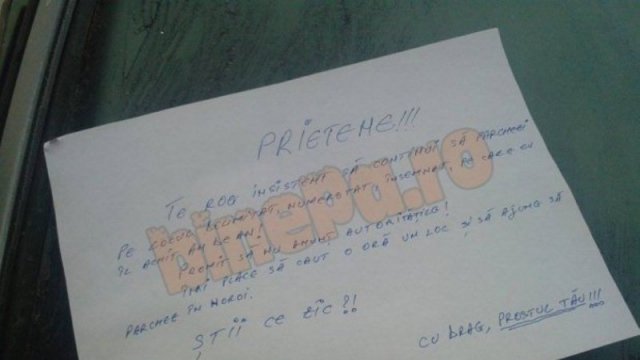 PRIETENE!!!
TE ROG INSISTENT SĂ CONTINUI SĂ PARCHEZI
PE LOCUL NUMEROTAT, ÎNSEMNAT, PE CARE EU
ÎL ACHIT AN DE AN!
PROMIT SĂ NU ANUNȚ AUTORITĂȚILE!
ÎMI PLACE SĂ CAUT O ORĂ UN LOC ȘI SĂ AJUNG SĂ
PARCHEZ ÎN NOROI.
ȘTII CE ZIC?!
CU DRAG, PROSTUL TĂU!!!
binepa.ro